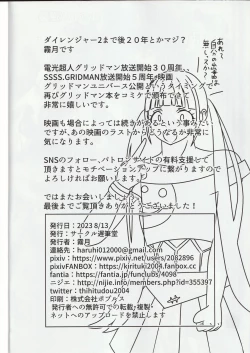 ダイレンジャー2まで後20年とかマジ？
霧月です
電光超人グリッドマン放送開始30周年、
SSSS.GRIDMAN放送開始5周年・映画
グリッドマンユニバース公開というタイミングで
再びグリッドマン本をコミケで頒布でき
非常に嬉しいです。
映画も場合によっては続きがあるという事みたいで
すが、あの映画のラストからどうなるか非常に
気になります。
SNSのフォロー、パトロンサイトの有料支援して
頂きますとモチベーションアップに繋がりますので
よろしければお願いします。
ではまたお会いしましょう
最後までご覧頂きありがとうございました！
発行日：2023 8/13
発行：サークル遅筆堂
発行者：霧月
連絡先：haruhi012000@gmail.com
pixiv：https://www.pixiv.net/users/2082896
pixivFANBOX：https://kirituki2004.fanbox.cc
fantia：https://fantia.jp/fanclubs/4098
ニジエ：http://nijie.info/members.php?id=355397
twitter：thihitudou2004
印刷：株式会社ポプルス
発行者への無許可での転載・複製・
ネットへのアップロードを禁止します